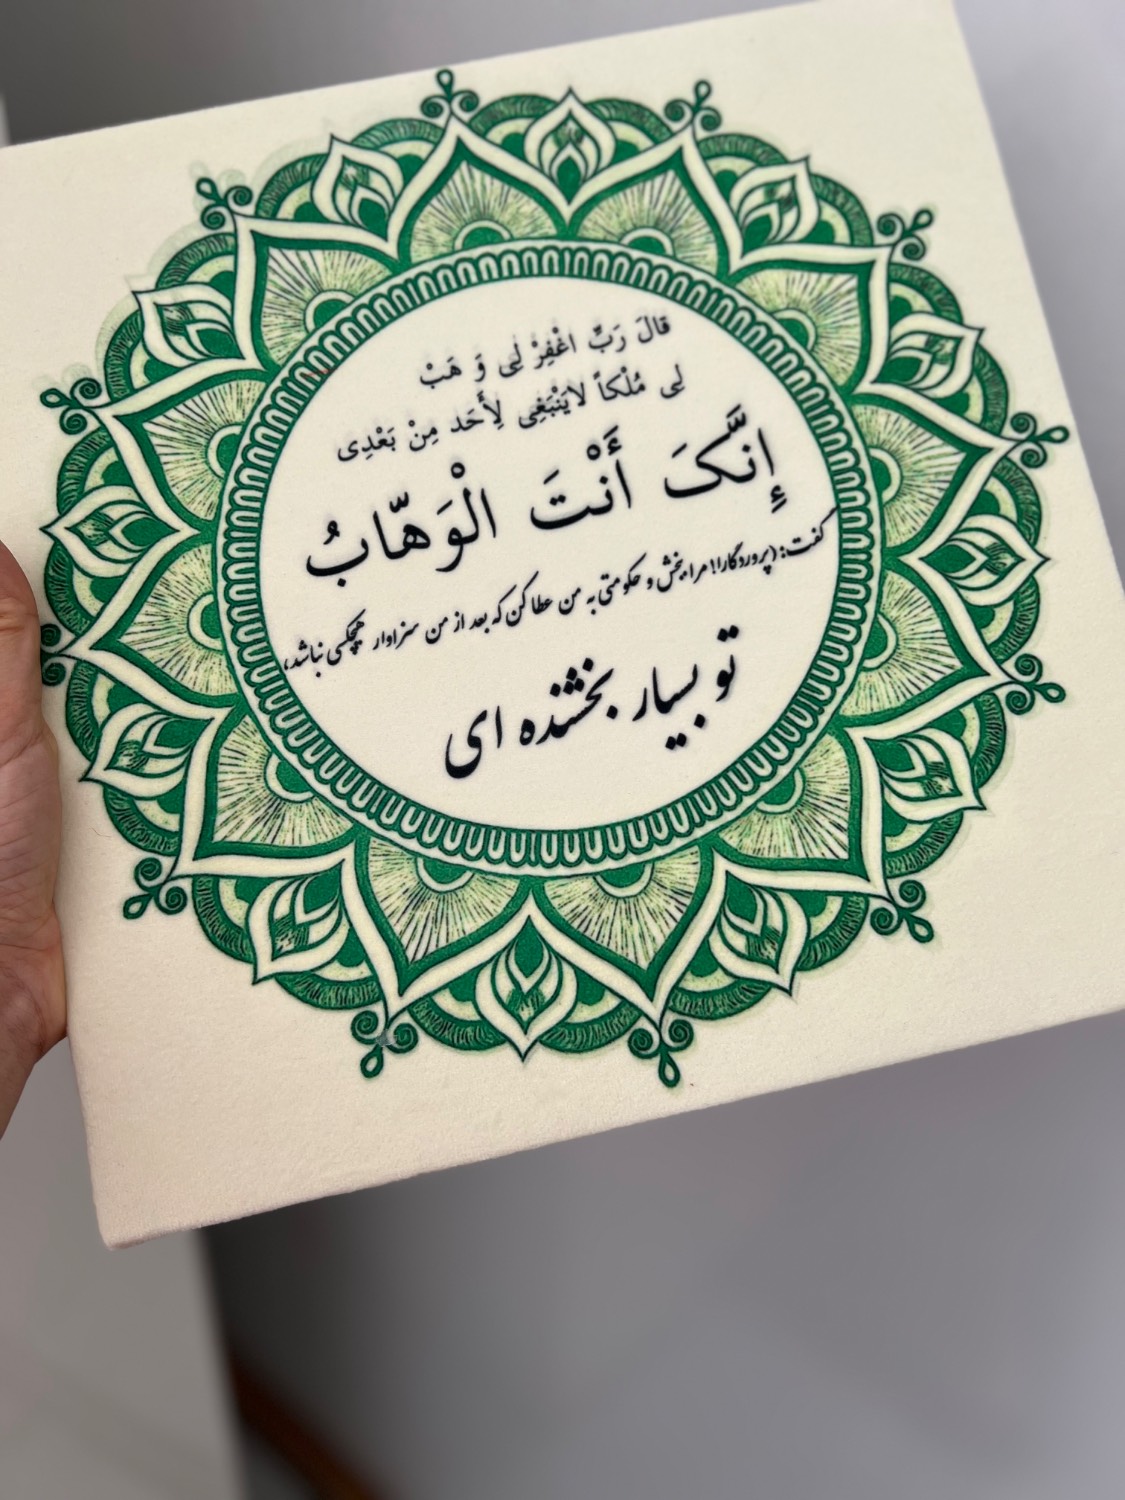 قالَ رَبِّ اغْفِرْ لِی وَ هَبْ
لِی مُلْکاً لایَنْبَغِی لِأَحَد مِنْ بَعْدِی
إِنَّکَ أَنْتَ الْوَهّابُ
گفت: (پروردگارا! مرا ببخش و حکومتی به من عطا کن که بعد از من سزاوار هیچکس نباشد،
تو بسیار بخشنده ای